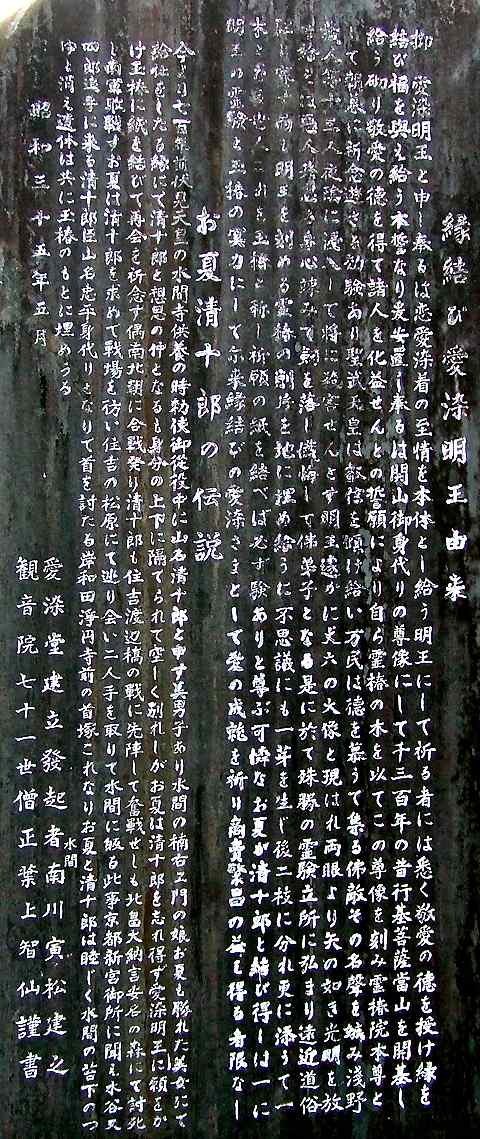 縁結び愛染明王由来
抑々愛染明王と申し奉るは恋愛染着の至情を本体とし給う明王にして祈る者には悉く敬愛の徳を授け縁を
結び福を與え給う本誓なり爰に安置し奉るは開山御身代りの尊像にして千三百年の昔行基菩薩當山を開基し
給う砌り敬愛の徳を得て諸人を化益せんとの誓願により自ら霊椿の木を以てこの尊像を刻み霊椿院本尊と
して朝暮に祈念 効験あり聖武天皇は叡信を傾け給い万民は徳を慕うて集る佛敵その名聲を嫉み浅野
十三人夜 将に殺害せんとす明王遽かに丈六の火像と現はれ両眼より矢の如き光明を放
ち給えば悪人 身心 落し懺悔して佛弟子となる是に於て殊勝の霊験立所に弘まり遠近道俗
明王を刻める霊椿の削片を地に埋め給うに不思議にも一芽を生じ後二枝に分れ更に添うて一
木と これを玉椿と称し祈願の紙を結べば必ず験ありと尊ぶ可憐なお夏が清十郎と結び得しは一に
明王の霊験と玉椿の冥力にして爾来縁結びの愛染さまとして愛の成就を祈り商賣繁昌の益を得る者限なし
お夏清十郎の伝説
今より七百年前伏見天皇の水間寺供養の時勅使御従役中に山名清十郎と申す美男子あり水間の楠右ヱ門の娘お夏も勝れた美女にて
給仕をしたる縁にて清十郎と想思の仲となるも身分の上下に隔てられて空しく別れしがお夏は清十郎を忘れ得ず愛染明王に願をか
け玉椿に紙を結びて再会を祈念す偶南北朝に合戦発り清十郎も住吉渡辺橋の戦に先陣して奮戦せしも北畠大納言安名の森にて討死
し南軍敗戦すお夏は清十郎を求めて戦場を彷い住吉の松原にて逃り会い二人手を取りて水間に皈る此事京都新宮御所に聞え水谷又
四郎追手に来る清十郎臣山名忠平身代りとなりて首を討たる岸和田浄円寺前の首塚これなりお夏と清十郎は睦じく水間の苔下のつ
ゆと消え遺体は共に玉椿のもとに埋めらる
昭和三十五年五月
愛染堂建立發起者水間南川寅松建之
観音院七十一世僧正葉上智仙謹書